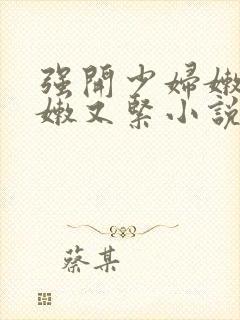 强開少婦嫩
嫩又緊小說
蔡某